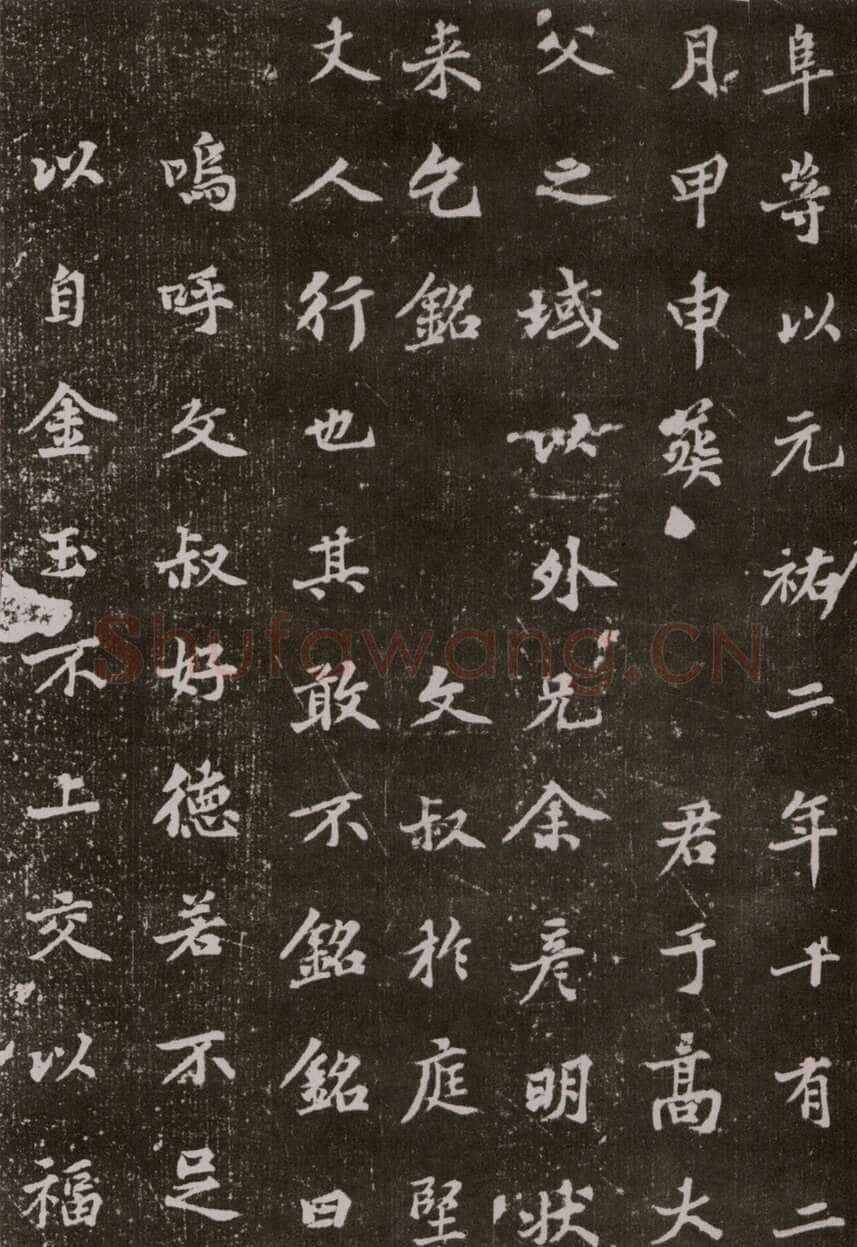 阜等以元祐二年十有二
月甲申葬 君于高大
父之域以外兄余彦明狀
来乞銘 文叔於庭堅
丈人行也其敢不銘銘曰
嗚呼文叔好德若不足
以自金玉不上交以福
Shufawang.CN